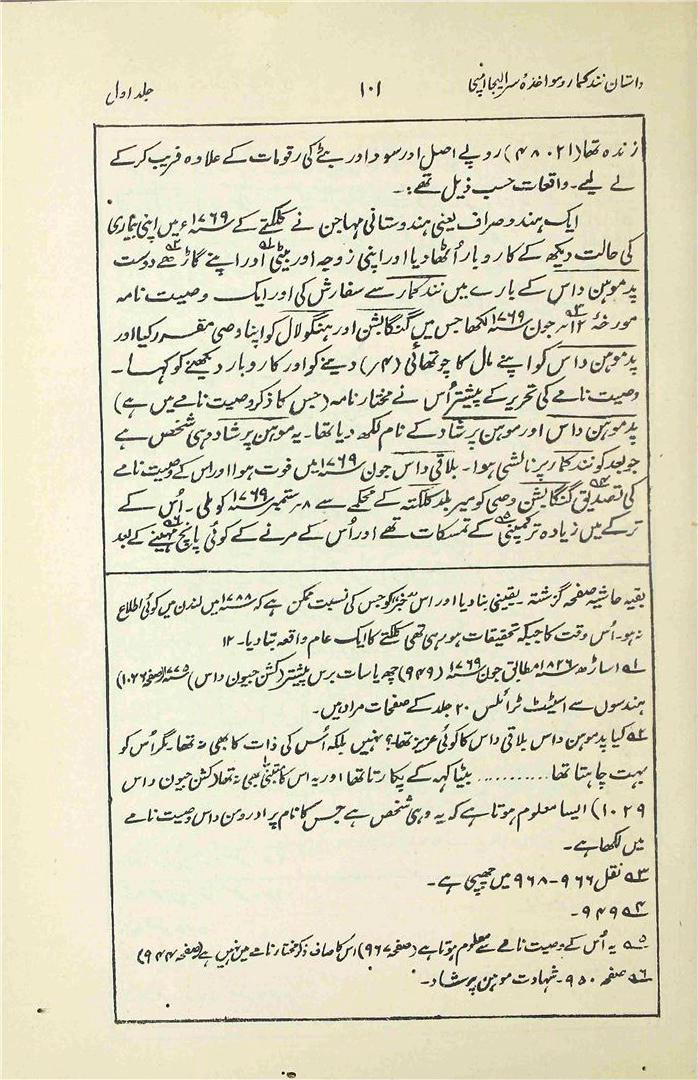 داستان نندکمار و مواخذۂ سر الیجا امپی
۱۰۱
جلد اول
زندہ تھا (۴۸۰۲۱) روپے اصل اور سود اور بٹے کی رقومات کے علاوہ فریب کر کے
لے لیے۔ واقعات حسب ذیل تھے:۔
ایک ہندو صراف یعنی ہندوستانی مہاجن نے کلکتے کے ۱۷۶۹ء میں اپنی بیماری
کی حالت دیکھ کے کاروبار اُٹھا دیا اور اپنی زوجہ اور بیٹی اور اپنے گاڑھے دوست
پدموہن داس کے بارے میں نندکمار سے سفارش کی اور ایک وصیت نامہ
مورخۂ ۱۲ جون ۱۷۶۹ء لکھا جس میں گنگابشن اور ہنگولال کو اپنا وصی مقرر کیا اور
پدموہن داس کو اپنے مال کا چوتھائی (۴؍) دینے کو اور کاروبار دیکھنے کو کہا۔
وصیت نامے کی تحریر کے پیشتر اُس نے مختارنامہ (جس کا ذکر وصیت نامے میں ہے)
پدموہن داس اور موہن پرشاد کے نام لکھ دیا تھا۔ یہ موہن پرشاد وہی شخص ہے
جو بعد کو نندکمار پر نالشی ہوا۔ بلاقی داس جون ۱۷۶۹ء میں فوت ہوا اور اس کے وصیت نامے
کی تصدیق گنگابشن وصی کو میر بلد کلکتہ کے محکمے سے ۸ ستمبر ۱۷۶۹ء کو ملی۔ اُس کے
ترکے میں زیادہ تر کمپنی کے تمسکات تھے اور اُس کے مرنے کے کوئی پانچ مہینے کے بعد
بقیہ حاشیہ صفحہ گزشتہ۔ یقینی بنا دیا اور اس خبر کو جس کی نسبت ممکن ہے کہ ۱۷۸۸ء میں لندن میں کوئی اطلاع
نہ ہو۔ اُس وقت کا جبکہ تحقیقات ہو رہی تھی کلکتے کا ایک عام واقعہ بتا دیا۔ ۱۲
۵۱ اساڑھ ۱۸۲۶ مطابق جون ۱۷۶۹ء (۹۴۹) چھ یا سات برس پیشتر (کشن جیون داس) ۱۷۷۵ء (صفحہ ۱۰۲۶)
ہندسوں سے اسٹیٹ ٹرائلس ۲۰ جلد کے صفحات مراد ہیں۔
۵۲ کیا پدموہن داس بلاقی داس کا کوئی عزیز تھا؟ نہیں بلکہ اُس کی ذات کا بھی نہ تھا۔ مگر اُس کو
بہت چاہتا تھا ........... بیٹا کہہ کے پکارتا تھا اور یہ اس کا متبنیٰ بھی نہ تھا (کشن جیون داس
۱۰۲۹) ایسا معلوم ہوتا ہے کہ یہ وہی شخص ہے جس کا نام پرادرومن داس وصیت نامے
میں لکھا ہے۔
۵۳ نقل ۹۶۶-۹۶۸ میں چھپی ہے۔
۵۴ ۹۴۹۔
۵۵ یہ اُس کے وصیت نامے سے معلوم ہوتا ہے (صفحہ ۹۶۷) اس کا صاف ذکر مختارنامے میں نہیں ہے (صفحہ ۹۴۴)
۵۶ صفحہ ۹۵۰۔ شہادت موہن پرشاد۔